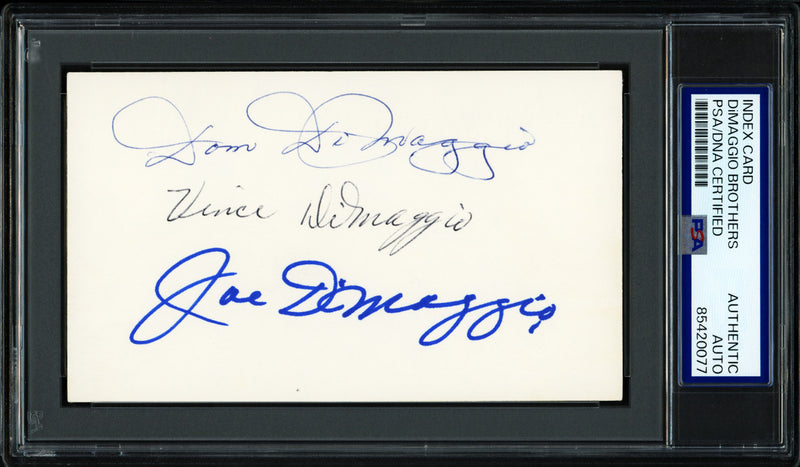 Dom DiMaggio
Vince DiMaggio
Joe DiMaggio
INDEX CARD
DiMAGGIO BROTHERS
PSA/DNA CERTIFIED
PSA
AUTHENTIC
AUTO
85420077